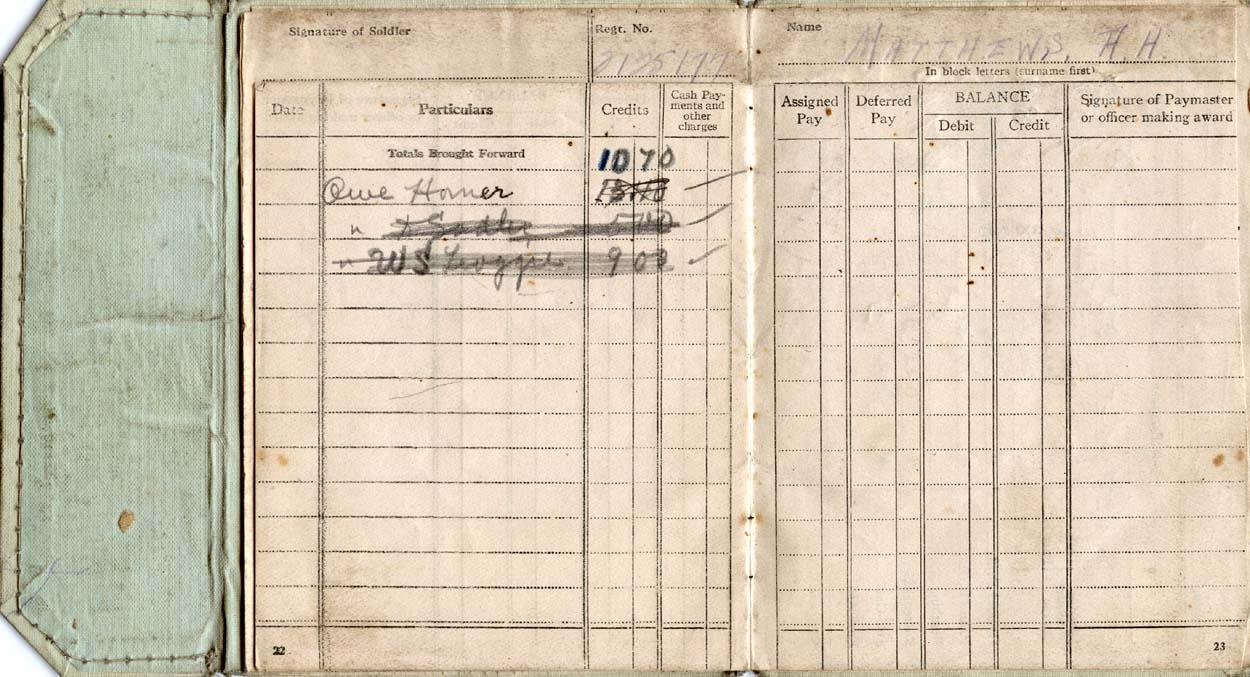 Signature of Soldier
Regt. No.
3125177
Date
Particulars
Credits
Cash Pay-
ments and
other
charges
Totals Brought Forward
10 70
Owe Homer
"
" WS
9 03
22
Name
MATTHEWS, H. H.
In block letters (surname first)
Assigned
Pay
Deferred
Pay
BALANCE
Debit
Credit
Signature of Paymaster
or officer making award
23